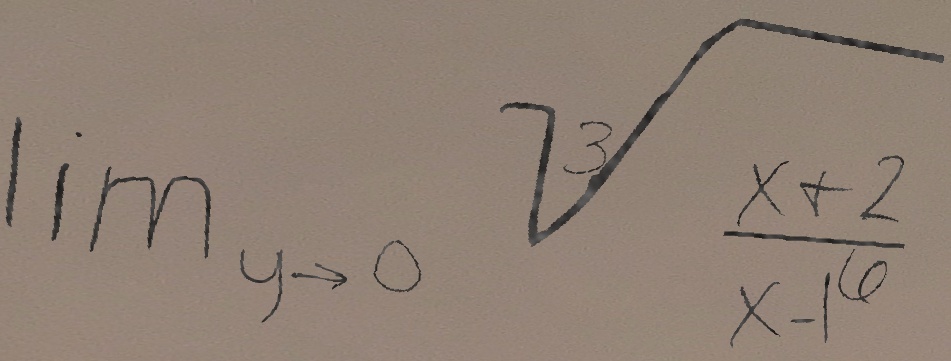 \lim_{y \to 0} \sqrt[3]{\frac{x+2}{x-1^6}}